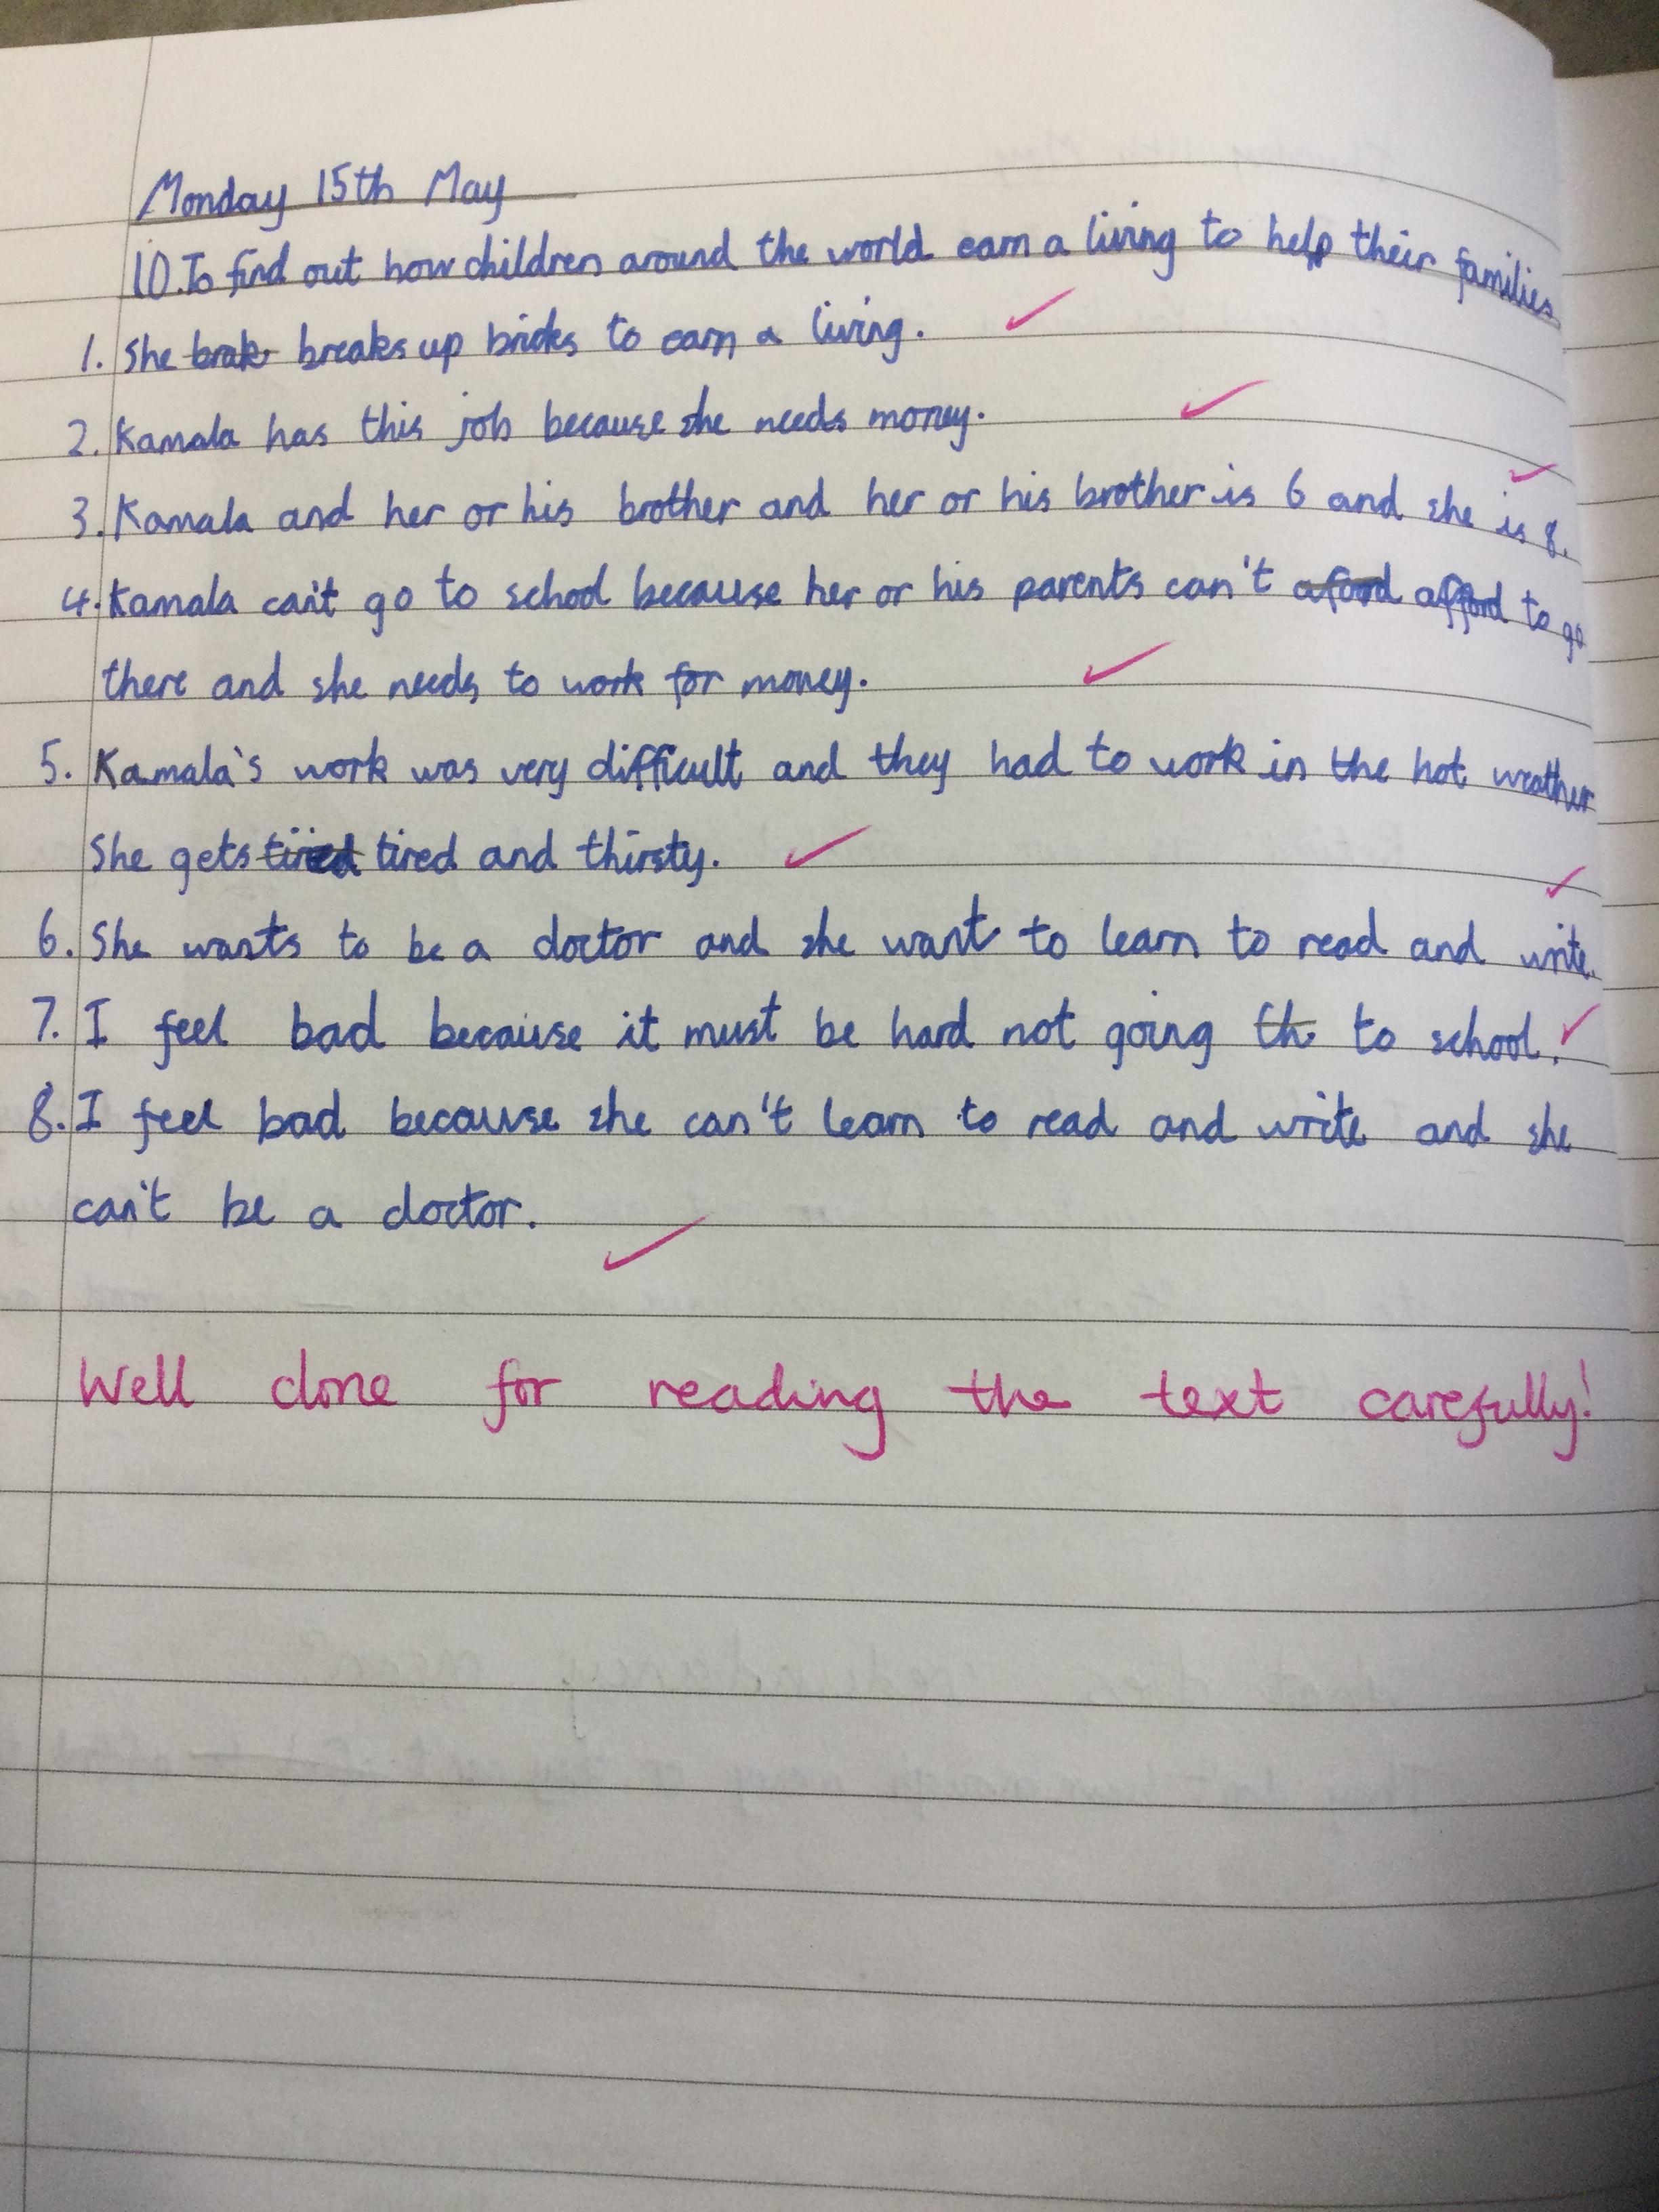 Monday 15th May
LO. To find out how children around the world earn a living to help their families
1. She brak breaks up bricks to earn a living.
2. Kamala has this job because she needs money.
3. Kamala and her or his brother and her or his brother is 6 and she is 8.
4. Kamala can't go to school because her or his parents can't aford afford to go
there and she needs to work for money.
5. Kamala's work was very difficult and they had to work in the hot weather
She gets tired tired and thirsty.
6. She wants to be a doctor and she want to learn to read and write.
7. I feel bad because it must be hard not going th to school.
8. I feel bad because she can't learn to read and write and she
can't be a doctor.
Well done for reading the text carefully!